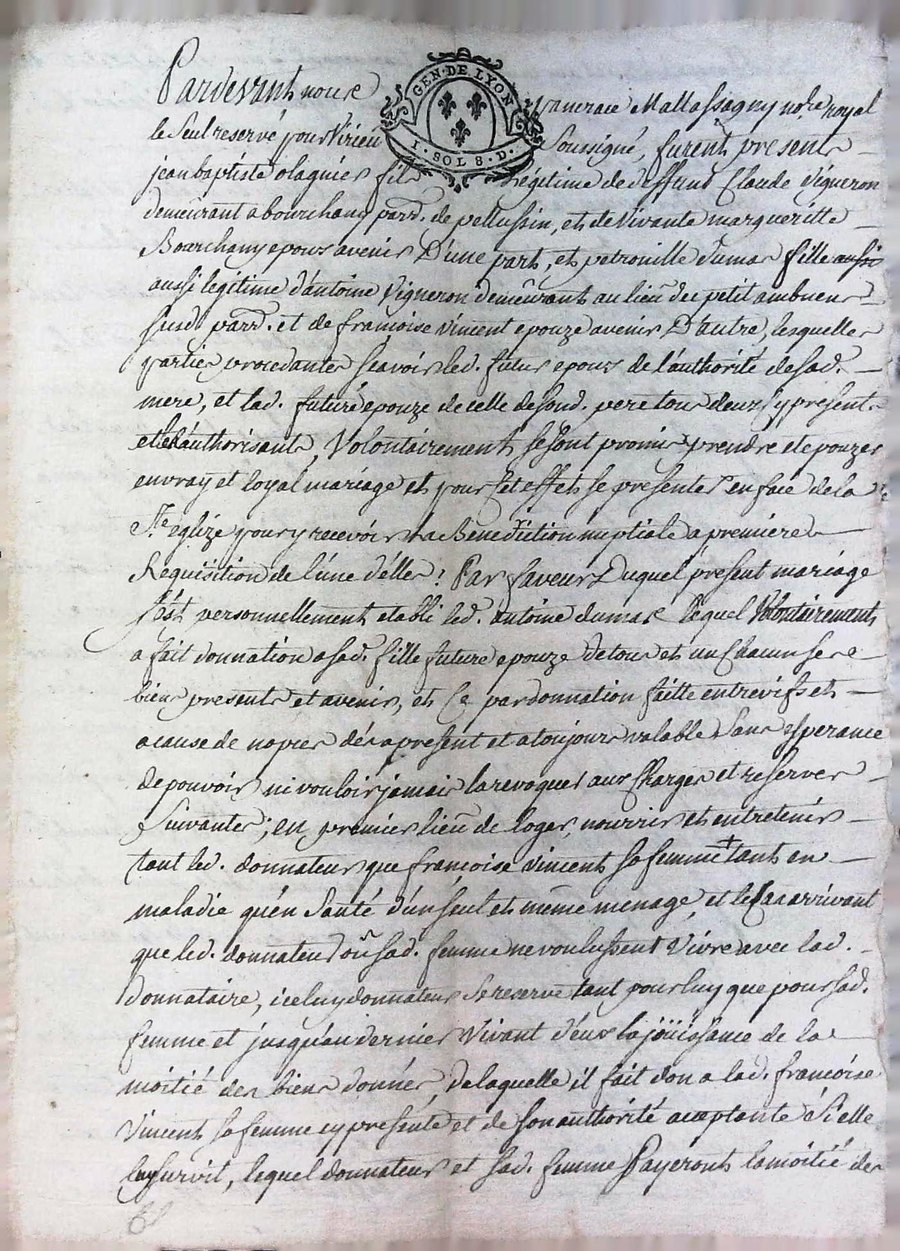 Pardevant nous
GEN. DE LYON
I. SOL 8. D.
Mallassagny no.re royal
le Seul reservé pour Virieu Soussigné, furent presents
jean baptiste olagnier fils Légitime de deffunt Claude Vigneron
demeurant a bourchany pard. de pellussin, et de vivante margueritte
Bourchany epoux avenir D'une part, et petronille dumas fille aussi
aussi legitime d'antoine Vigneron demeurant au lieu du petit ambuent
susd. pard. et de francoise vincent epouze avenir D'autre, lesquelles
parties procedantes scavoir led. futur epoux de l'authorité de sad.
mere, et lad. future epouze de celle de sond. pere tous deux icy presents
et les authorisants, Volontairement se sont promis prendre et epouzer
en vray et loyal mariage et pour cet effet se presenter en face de la
S.te eglize pour y recevoir la Benediction nuptiale a premiere
Requisition de l'une d'elles; Par faveur Duquel present mariage
s'est personnellement etabli led. antoine dumas lequel Volontairement
a fait donnation a sad. fille future epouze De tous et un Chacun ses
biens presents et avenir, et ce par donnation faitte entrevifs et
a cause de nopces dès a present et a toujours valable Sans esperance
de pouvoir ni vouloir jamais la revoquer aux Charges et reserves
Suivantes; en premier lieu de loger, nourrir et entretenir
tant led. donnateur que francoise vincent sa femme + tant en
maladie qu'en Santé d'un seul et même menage, et le Cas arrivant
que led. donnateur ou sad. femme ne voulussent Vivre avec lad.
donnataire, iceluy donnateur Se reserve tant pour luy que pour sad.
femme et jusqu'au dernier Vivant d'eux la joüissance de la
moitié des biens donnés, De laquelle il fait don a lad. francoise
Vincent sa femme cy presente et de son authorité aceptante si elle
luy survit, lequel donnateur et sad. femme Payeront la moitié des